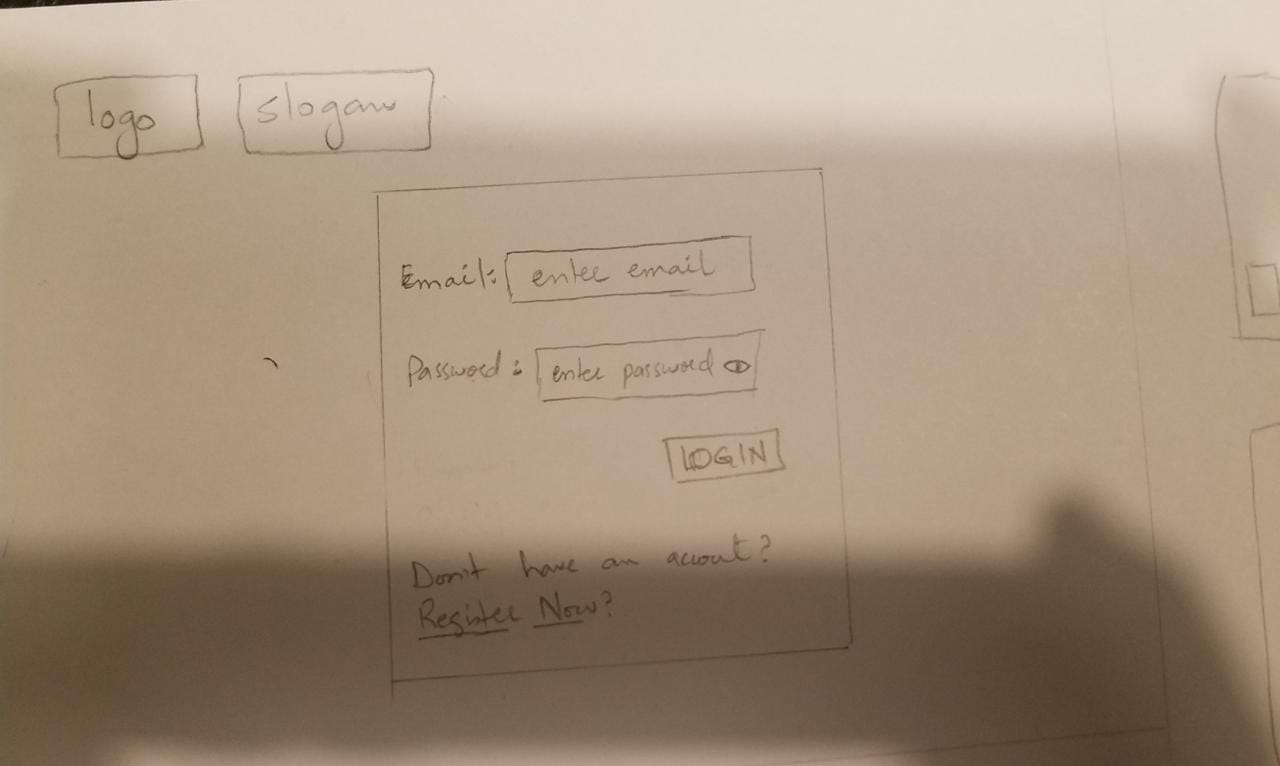 logo
slogan
Email: enter email
Password: enter password
LOGIN
Don't have an accout?
Register Now?